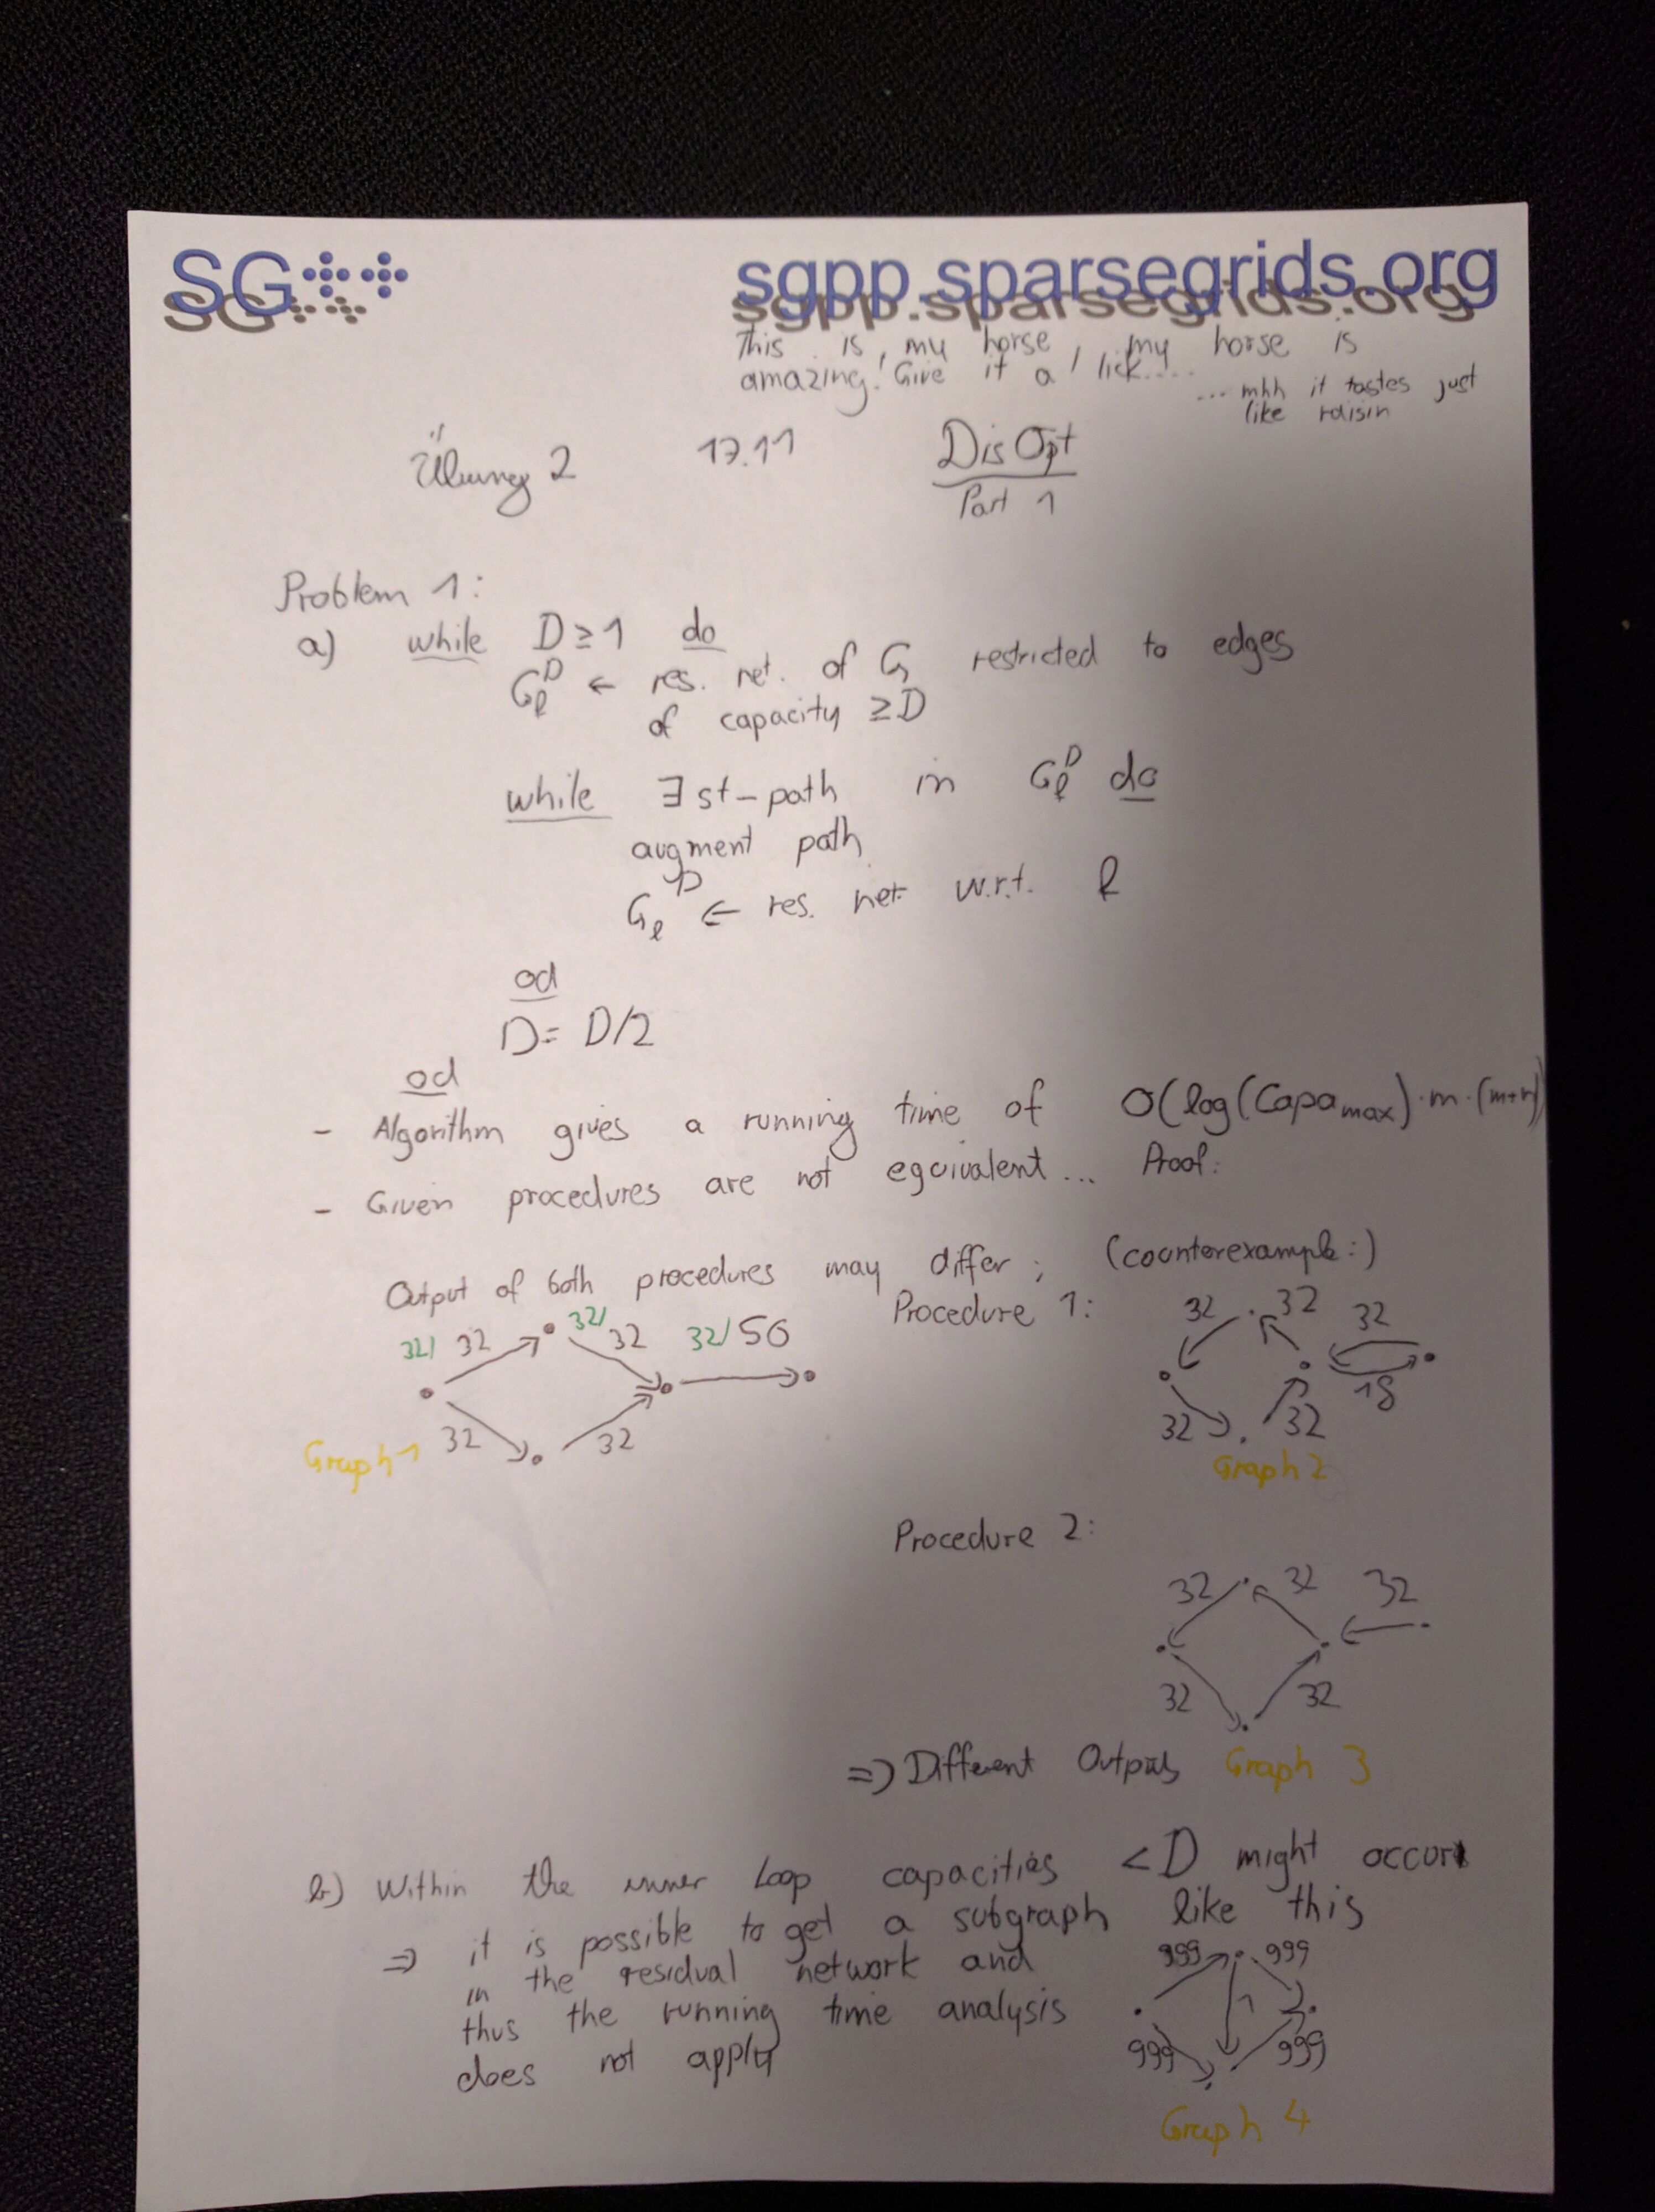 SG++
sgpp.sparsegrids.org
This is my horse, my horse is
amazing! Give it a lick....
... mhh it tastes just
like raisin
Übung 2 17.11 DisOpt
Part 1
Problem 1:
a) while D ≥ 1 do
G_f^D ← res. net. of G restricted to edges
of capacity ≥ D
while ∃ st-path in G_f^D do
augment path
G_f^D ← res. net. w.r.t. f
od
D = D/2
od
- Algorithm gives a running time of O(log(Capa_max)·m·(m+n))
- Given procedures are not equivalent... Proof:
Output of both procedures may differ; (counterexample:)
32/ 32 32/ 32 32/ 50
32 32
Graph 1
Procedure 1:
32 32 32
18
32 32
Graph 2
Procedure 2:
32 32 32
32 32
⇒ Different Outputs Graph 3
b) Within the inner Loop capacities < D might occur
⇒ it is possible to get a subgraph like this
in the residual network and
thus the running time analysis
does not apply
999 999
1
999 999
Graph 4